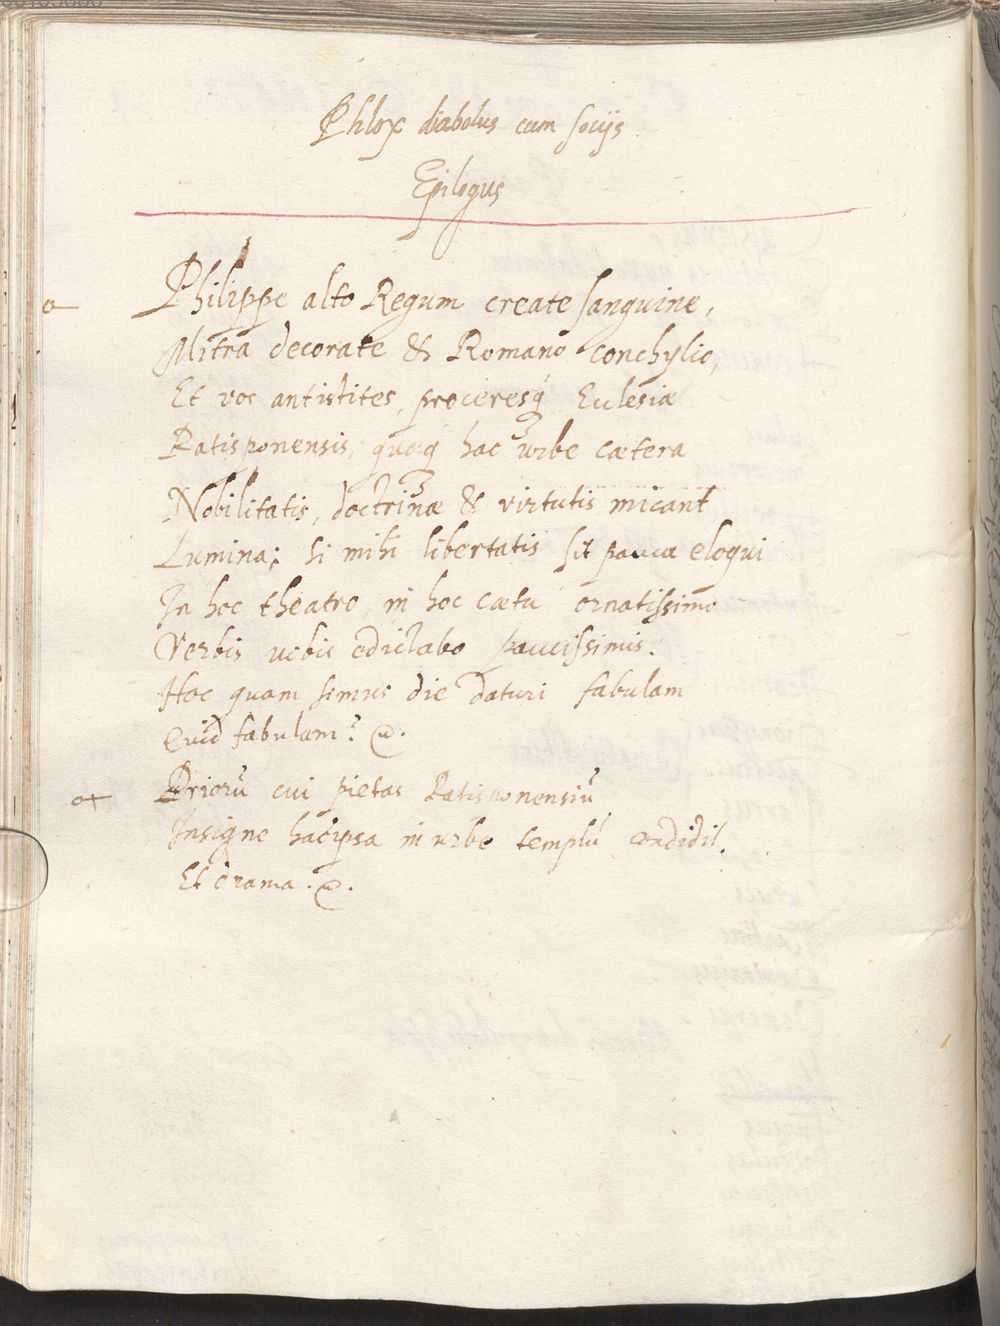 Phlox diabolus cum socijs
Epilogus
Philippe alto Regum create sanguine,
Mitra decorate & Romano conchylio,
Et vos antistites, proceresq́ Ecclesiæ
Ratisponensis, quæq́ hac urbe cætera
Nobilitatis, doctrinæ & virtutis micant
Lumina; si mihi libertatis sit pauca eloqui
In hoc theatro, in hoc cætu ornatissimo
Verbis vobis edictabo paucissimis.
Hoc quam simus die daturi fabulam
Quid fabulam?
Priorũ cui pietas Ratisponensiũ
Insigne hac ipsa in urbe templũ condidit.
Et drama.